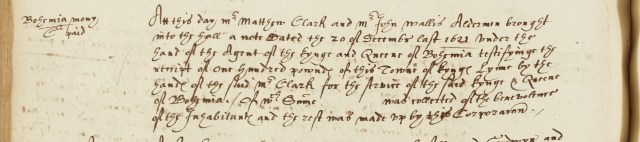 Bohemia mony
paid
At this day mr Matthew Clark and mr John Wallis Aldermen brought
into the hall a note Dated the 20 of December last 1621 under the
hand of the Agent of the kynge and Queene of Bohemia testifyinge the
receipt of One hundred pownde of this Towne of kynge Lynne by the
hande of the said mr Clark for the service of the said kynge & Queene
of Bohemia / Of wch Sume was collected of the benevolence
of the Inhabitante and the rest was made up by this Corporacon